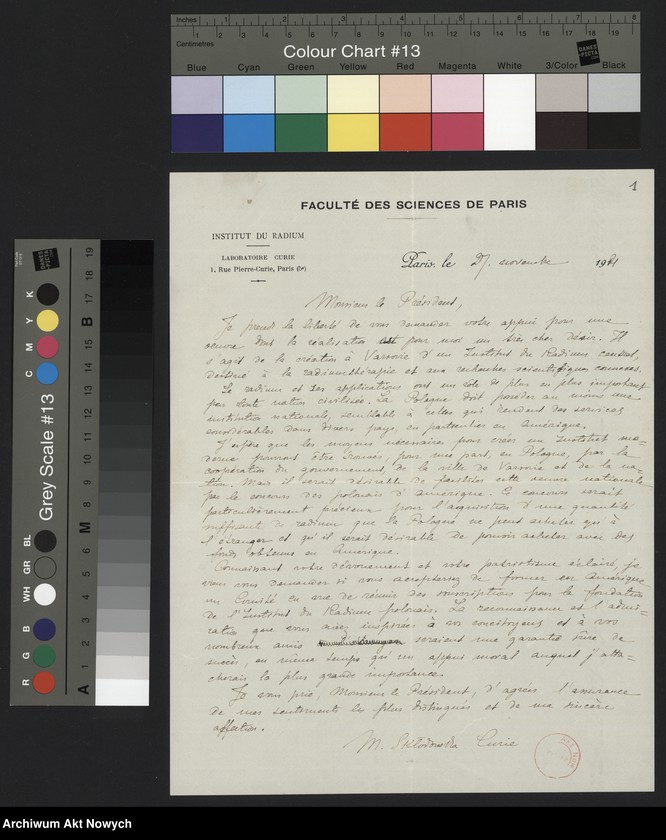 Inches 1 2 3 4 5 6 7 8
Centimetres 1 2 3 4 5 6 7 8 9 10 11 12 13 14 15 16 17 18 19
Colour Chart #13
DANES PICTA
Blue Cyan Green Yellow Red Magenta White 3/Color Black
Grey Scale #13
R G B WH GR BL C M Y K
A 1 2 3 4 5 6 M 8 9 10 11 12 13 14 15 B 17 18 19
1
FACULTÉ DES SCIENCES DE PARIS
INSTITUT DU RADIUM
LABORATOIRE CURIE
1, Rue Pierre-Curie, Paris (5e)
Paris, le 27 novembre 1921
Monsieur le Président,
Je prends la liberté de vous demander votre appui pour une
oeuvre dont la réalisation est pour moi un très cher désir. Il
s'agit de la création à Varsovie d'un Institut du Radium central,
destiné à la radiumthérapie et aux recherches scientifiques connexes.
Le radium et ses applications ont un rôle de plus en plus important
pour toute nation civilisée. La Pologne doit posséder au moins une
institution nationale, semblable à celles qui rendent des services
considérables dans divers pays, en particulier en Amérique.
J'espère que les moyens nécessaires pour créer un Institut mo=
derne pourront être trouvés, pour une part, en Pologne, par la
coopération du gouvernement, de la ville de Varsovie et de la na=
tion. Mais il serait désirable de faciliter cette oeuvre nationale
par le concours des polonais d'Amérique. Ce concours serait
particulièrement précieux pour l'acquisition d'une quantité
suffisante de radium que la Pologne ne peut acheter qu'à
l'étranger et qu'il serait désirable de pouvoir acheter avec des
fonds obtenus en Amérique.
Connaissant votre dévouement et votre patriotisme éclairé, je
veux vous demander si vous accepteriez de former en Amérique
un Comité en vue de réunir des souscriptions pour la fondation
de l'Institut du Radium polonais. La reconnaissance et l'admi=
ration que vous avez inspirées à vos concitoyens et à vos
nombreux amis seraient une garantie sûre de
succès, en même temps qu'un appui moral auquel j'atta=
cherais la plus grande importance.
Je vous prie, Monsieur le Président, d'agréer l'assurance
de mes sentiments les plus distingués et de ma sincère
affection.
M. Skłodowska Curie
Archiwum Akt Nowych